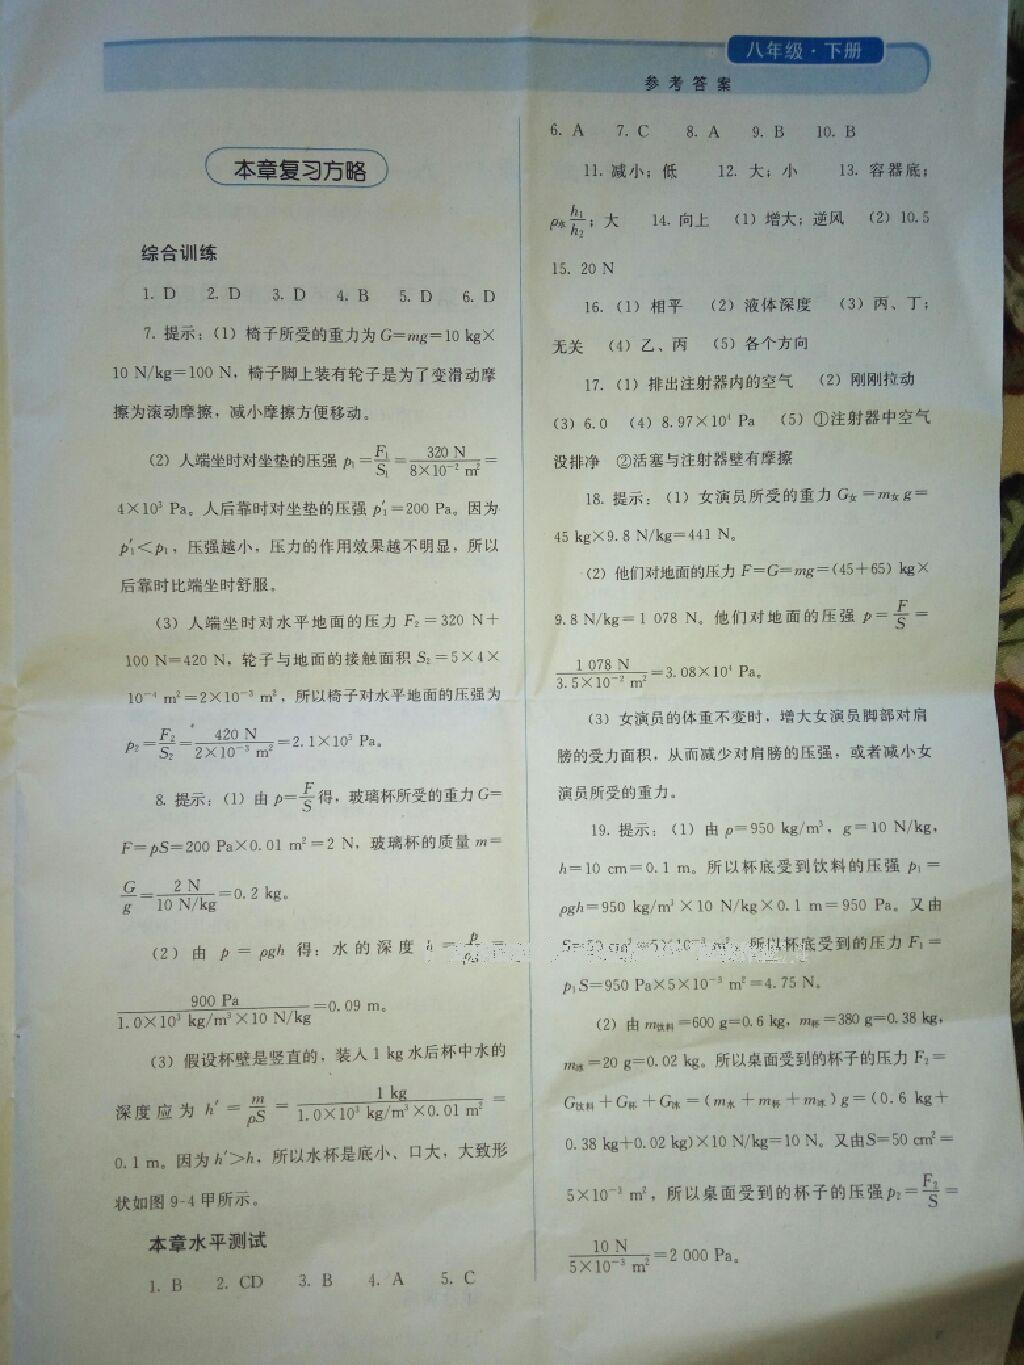 八年级·下册
参考答案
本章复习方略
综合训练
1. D 2. D 3. D 4. B 5. D 6. D
7. 提示：(1) 椅子所受的重力为G=mg=10 kg×
10 N/kg=100 N，椅子脚上装有轮子是为了变滑动摩
擦为滚动摩擦，减小摩擦方便移动。
(2) 人端坐时对坐垫的压强 p₁=F₁/S₁=320 N/(8×10⁻² m²)=
4×10³ Pa。人后靠时对坐垫的压强 p′₁=200 Pa。因为
p′₁<p₁，压强越小，压力的作用效果越不明显，所以
后靠时比端坐时舒服。
(3) 人端坐时对水平地面的压力 F₂=320 N+
100 N=420 N，轮子与地面的接触面积 S₂=5×4×
10⁻⁴ m²=2×10⁻³ m²，所以椅子对水平地面的压强为
p₂=F₂/S₂=420 N/(2×10⁻³ m²)=2.1×10⁵ Pa。
8. 提示：(1) 由 p=F/S得，玻璃杯所受的重力G=
F=pS=200 Pa×0.01 m²=2 N，玻璃杯的质量 m=
G/g=2 N/(10 N/kg)=0.2 kg。
(2) 由 p=ρgh 得：水的深度 h=p/ρg=
900 Pa/(1.0×10³ kg/m³×10 N/kg)=0.09 m。
(3) 假设杯壁是竖直的，装入 1 kg 水后杯中水的
深度应为 h′=m/ρS=1 kg/(1.0×10³ kg/m³×0.01 m²)=
0.1 m。因为 h′>h，所以水杯是底小、口大，大致形
状如图 9-4 甲所示。
本章水平测试
1. B 2. CD 3. B 4. A 5. C
6. A 7. C 8. A 9. B 10. B
11. 减小；低 12. 大；小 13. 容器底；
ρ水h₁/h₂；大 14. 向上 (1) 增大；逆风 (2) 10.5
15. 20 N
16. (1) 相平 (2) 液体深度 (3) 丙、丁；
无关 (4) 乙、丙 (5) 各个方向
17. (1) 排出注射器内的空气 (2) 刚刚拉动
(3) 6.0 (4) 8.97×10⁴ Pa (5) ①注射器中空气
没排净 ②活塞与注射器壁有摩擦
18. 提示：(1) 女演员所受的重力 G女=m女g=
45 kg×9.8 N/kg=441 N。
(2) 他们对地面的压力 F=G=mg=(45+65) kg×
9.8 N/kg=1 078 N。他们对地面的压强 p=F/S=
1 078 N/(3.5×10⁻² m²)=3.08×10⁴ Pa。
(3) 女演员的体重不变时，增大女演员脚部对肩
膀的受力面积，从而减少对肩膀的压强，或者减小女
演员所受的重力。
19. 提示：(1) 由 ρ=950 kg/m³，g=10 N/kg，
h=10 cm=0.1 m。所以杯底受到饮料的压强 p₁=
ρgh=950 kg/m³×10 N/kg×0.1 m=950 Pa。又由
S=50 cm²=5×10⁻³ m²，所以杯底受到的压力 F₁=
p₁S=950 Pa×5×10⁻³ m²=4.75 N。
(2) 由 m饮料=600 g=0.6 kg，m杯=380 g=0.38 kg，
m冰=20 g=0.02 kg。所以桌面受到的杯子的压力 F₂=
G饮料+G杯+G冰=(m水+m杯+m冰)g=(0.6 kg+
0.38 kg+0.02 kg)×10 N/kg=10 N。又由S=50 cm²=
5×10⁻³ m²，所以桌面受到的杯子的压强 p₂=F₂/S=
10 N/(5×10⁻³ m²)=2 000 Pa。